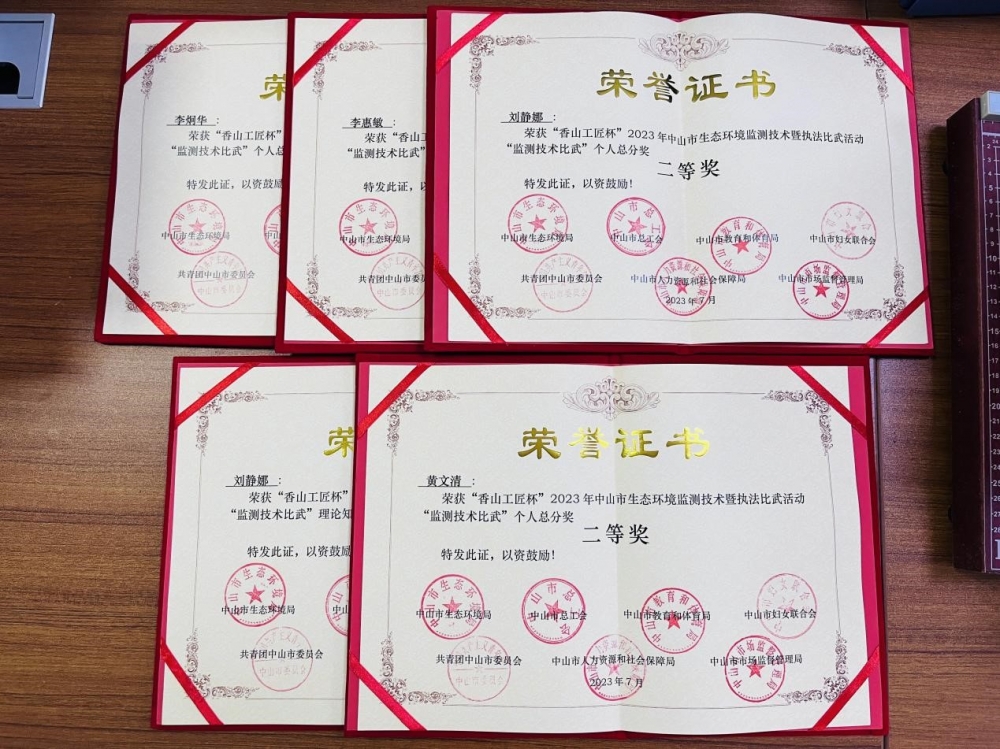 荣
李炯华：
荣获“香山工匠杯”
“监测技术比武”个人总
特发此证，以资鼓励
中山市生态环境局
共青团中山市委员会
李惠敏：
荣获“香山
“监测技术比武”
特发此证，以
中山市生态环境局
共青团中山市委员
荣誉证书
刘静娜：
荣获“香山工匠杯”2023年中山市生态环境监测技术暨执法比武活动
“监测技术比武”个人总分奖
二等奖
特发此证，以资鼓励！
中山市生态环境局 中山市总工会 中山市教育和体育局 中山市妇女联合会
共青团中山市委员会 中山市人力资源和社会保障局 中山市市场监督管理局
2023年7月
荣
刘静娜：
荣获“香山工匠杯”
“监测技术比武”理论知
特发此证，以资鼓励
中山市生态环境局
共青团中山市委员会
荣誉证书
黄文清：
荣获“香山工匠杯”2023年中山市生态环境监测技术暨执法比武活动
“监测技术比武”个人总分奖
二等奖
特发此证，以资鼓励！
中山市生态环境局 中山市总工会 中山市教育和体育局 中山市妇女联合会
共青团中山市委员会 中山市人力资源和社会保障局 中山市市场监督管理局
2023年7月